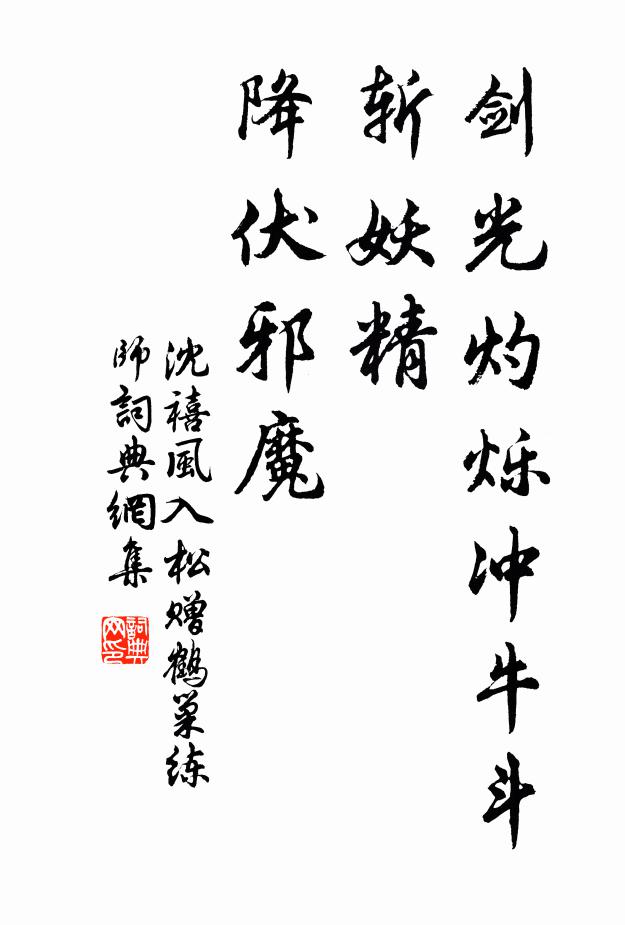 剑光灼烁冲牛斗
斩妖精
降伏邪魔
沈禧風入松赠鹤巢练
師詞典網集
詞典
网印